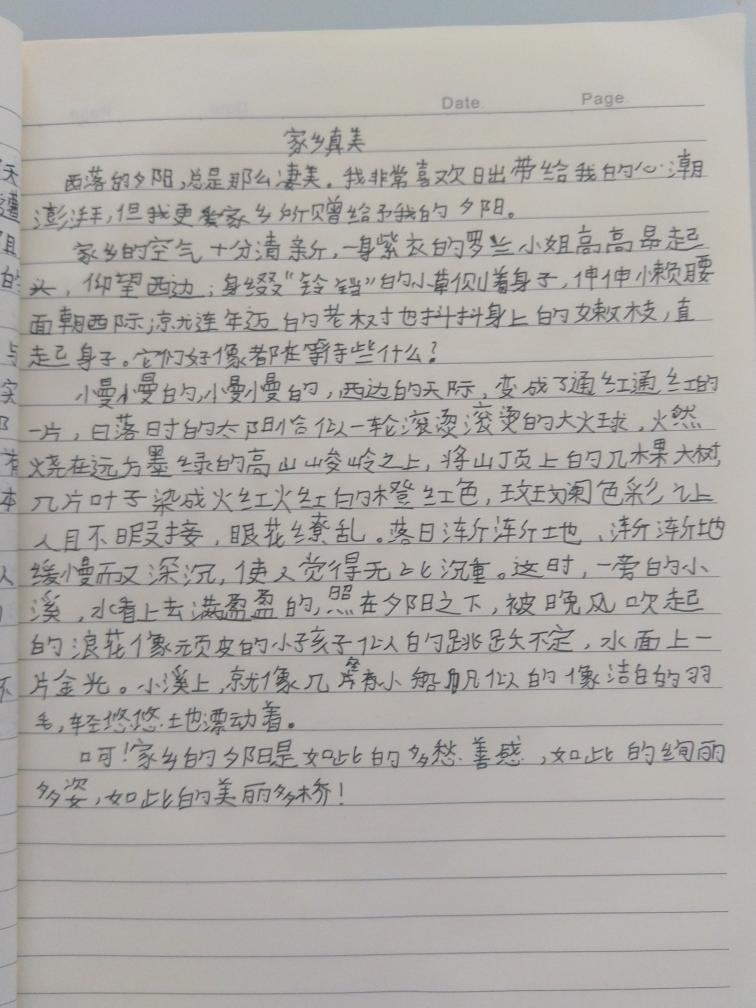 Date. Page.
家乡真美
西落的夕阳,总是那么凄美。我非常喜欢日出带给我的心潮
澎湃,但我更爱家乡所赠给予我的夕阳。
家乡的空气十分清新,一身紫衣的罗兰小姐高高昂起
头,仰望西边;身缀"铃铛"的小草侧着身子,伸伸懒腰
面朝西际;就连年迈的老树也抖抖身上的嫩枝,直
起身子。它们好像都在等待些什么?
慢慢的,慢慢的,西边的天际,变成了通红通红的
一片,日落时的太阳恰似一轮滚烫滚烫的大火球,火然
烧在远方墨绿的高山峻岭之上,将山顶上的几棵大树,
几片叶子染成火红火红的橙红色,斑斓色彩让
人目不暇接,眼花缭乱。落日渐渐地,渐渐地
缓慢而又深沉,使人觉得无比沉重。这时,一旁的小
溪,水看上去满盈盈的,照在夕阳之下,被晚风吹起
的浪花像顽皮的小孩子似的跳跃不定,水面上一
片金光。小溪上,就像几小船帆似的像洁白的羽
毛,轻悠悠地漂动着。
啊!家乡的夕阳是如此的多愁善感,如此的绚丽
多姿,如此的美丽多娇!
天
且
的
与
实
有
本
人
不